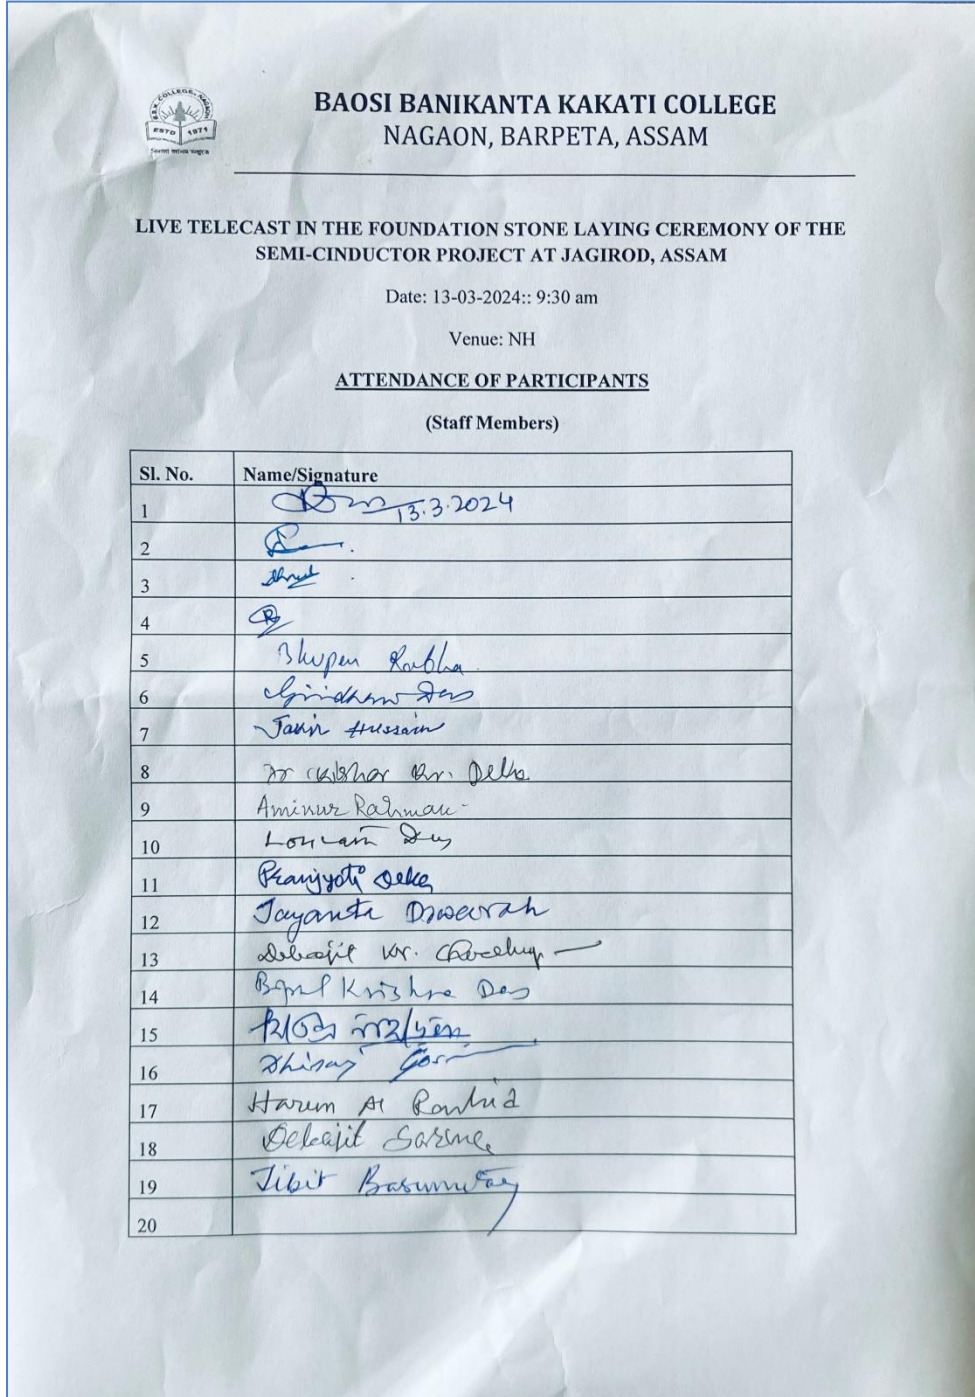 B.B.K. COLLEGE, NAGAON
ESTD 1971
BAOSI BANIKANTA KAKATI COLLEGE
NAGAON, BARPETA, ASSAM
LIVE TELECAST IN THE FOUNDATION STONE LAYING CEREMONY OF THE
SEMI-CINDUCTOR PROJECT AT JAGIROD, ASSAM
Date: 13-03-2024:: 9:30 am
Venue: NH
ATTENDANCE OF PARTICIPANTS
(Staff Members)
Sl. No. Name/Signature
1 13.3.2024
2
3
4
5 Bhupen Rabha
6 Das
7 Hussain
8 Dr Kishor Kr. Deka
9 Aminur Rahman
10 Das
11 Pranjyoti Deka
12 Jayanta
13 Debajit Kr.
14 Krishna Das
15
16 Dhiraj
17 Harun Al Rashid
18 Debajit Sarma
19 Jibit Basumatary
20